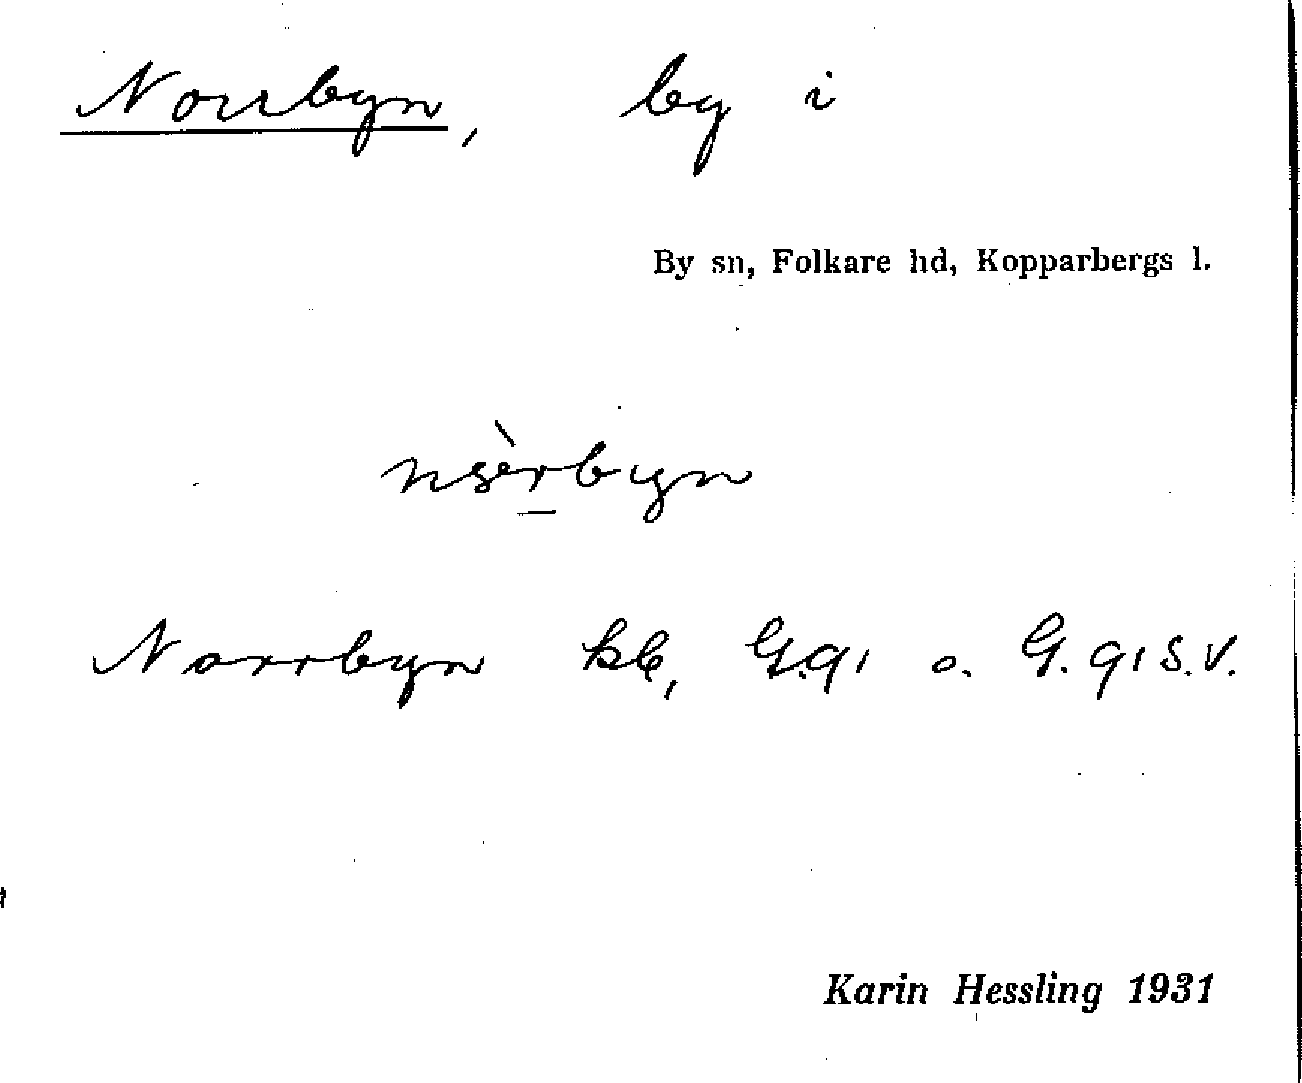 Norrbyn, by i
By sn, Folkare hd, Kopparbergs l.
Norrbyn kb, G.91 o. G.91 S.V.
Karin Hessling 1931